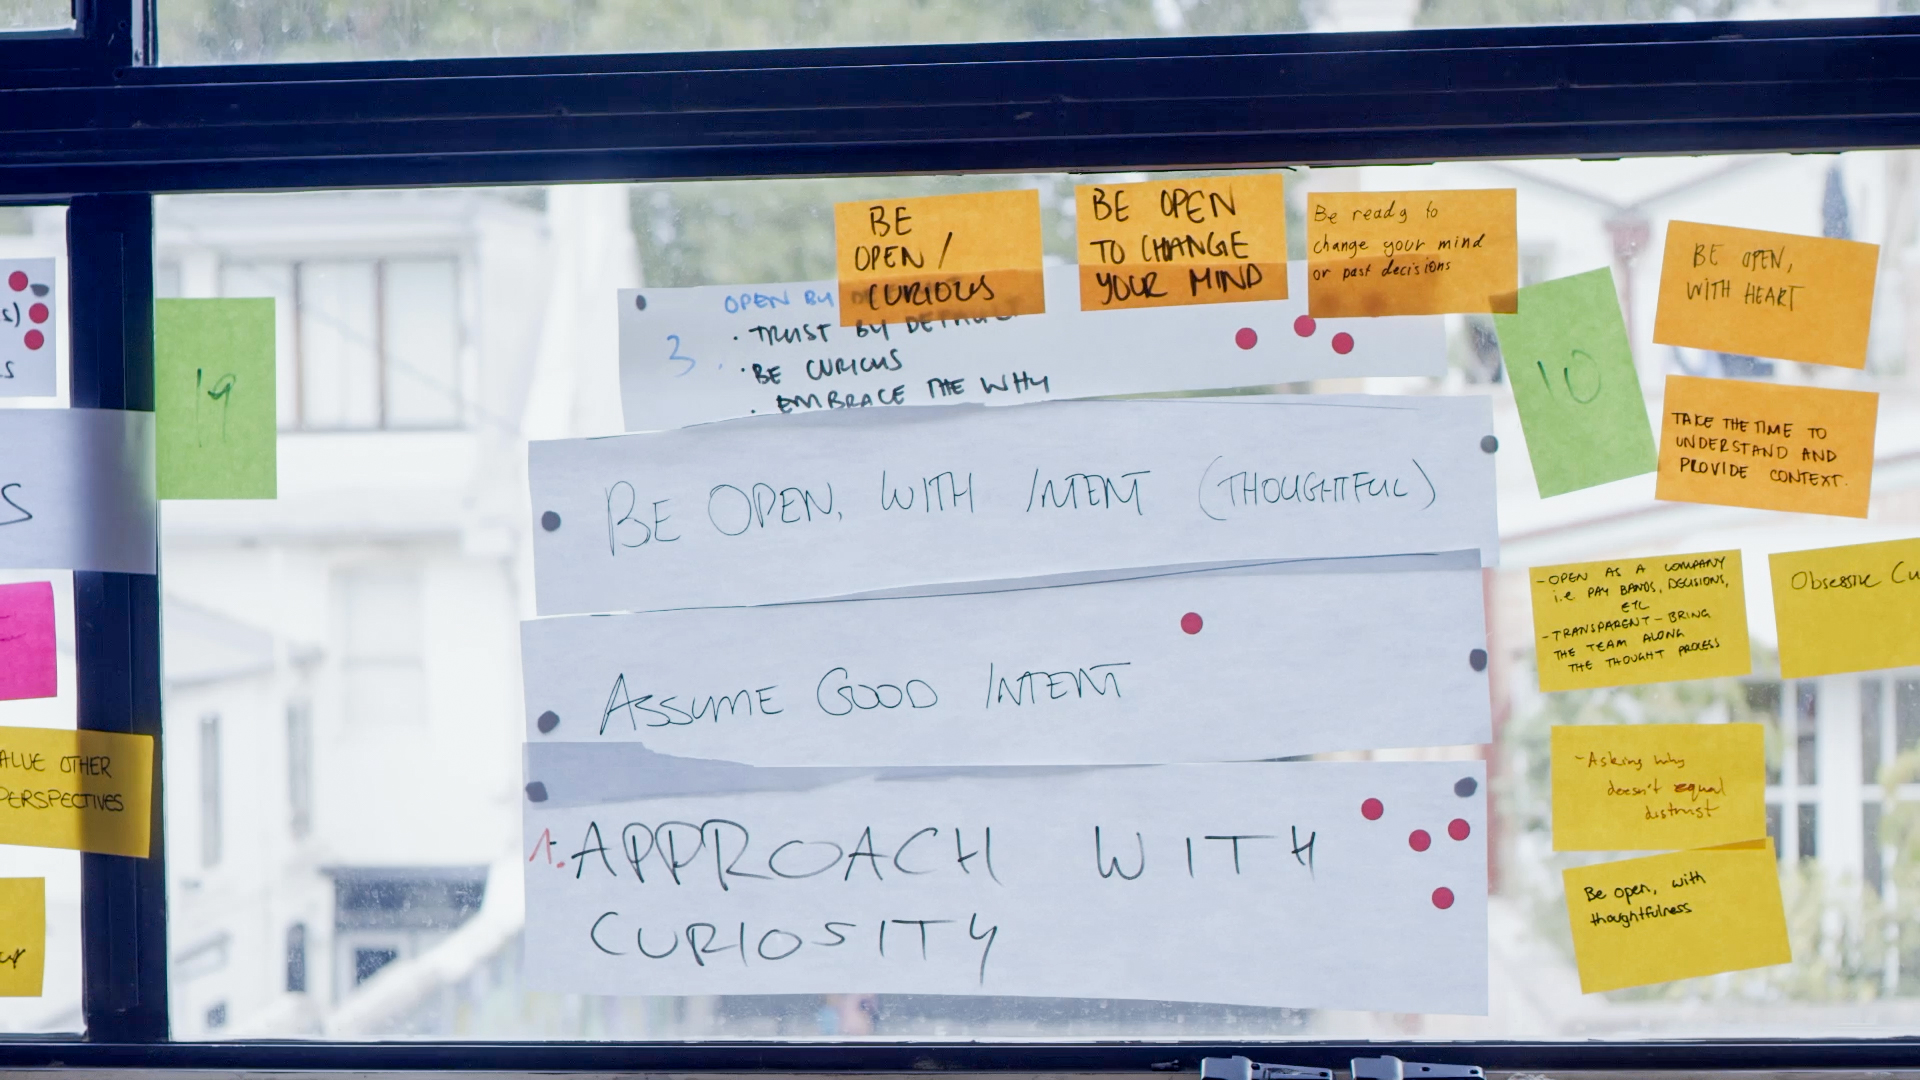 BE
OPEN /
CURIOUS
BE OPEN
TO CHANGE
YOUR MIND
Be ready to
change your mind
or past decisions
BE OPEN,
WITH HEART
19
3
OPEN BY
• TRUST BY
• BE CURIOUS
• EMBRACE THE WHY
10
TAKE THE TIME TO
UNDERSTAND AND
PROVIDE CONTEXT.
BE OPEN, WITH INTENT (THOUGHTFUL)
- OPEN AS A COMPANY
i.e PAY BANDS, DECISIONS,
ETC
- TRANSPARENT - BRING
THE TEAM ALONG
THE THOUGHT PROCESS
Obsessive
ASSUME GOOD INTENT
OTHER
PERSPECTIVES
- Asking why
doesn't equal
distrust
1. APPROACH WITH
CURIOSITY
Be open, with
thoughtfulness